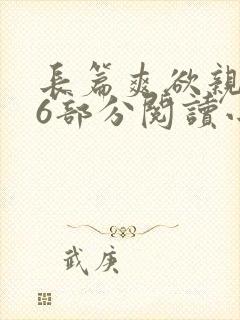 長篇爽欲親
6部分閱讀小
武庚